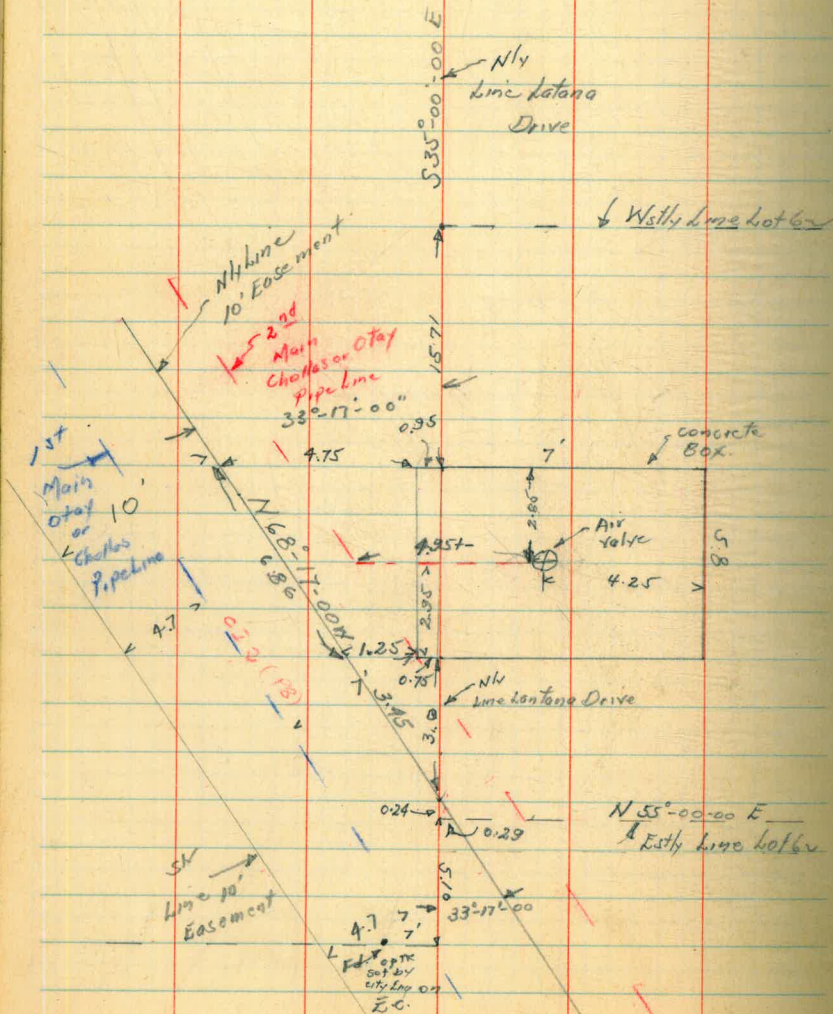 S 35°-00'-00 E
N'ly
Line Latana
Drive
Wstly Line Lot 62
N'ly Line
10' Easement
2nd
Main
Chollas or Otay
Pipe Line
33°-17'-00"
15.71
0.95
4.75
7'
concrete
Box.
1st
Main
Otay
or
Chollas
Pipeline
10'
N 68°-17-00 W
6.86
2.85
Air
valve
4.95+-
5.8
4.25
2.95
4.7
1.25
0.75
N'ly
Line Lantana Drive
3.45
0.24
0.29
N 55°-00-00 E
Estly Line Lot 62
5.10
33°-17'-00
Line 10'
Easement
4.7
7'
set by
city Eng on